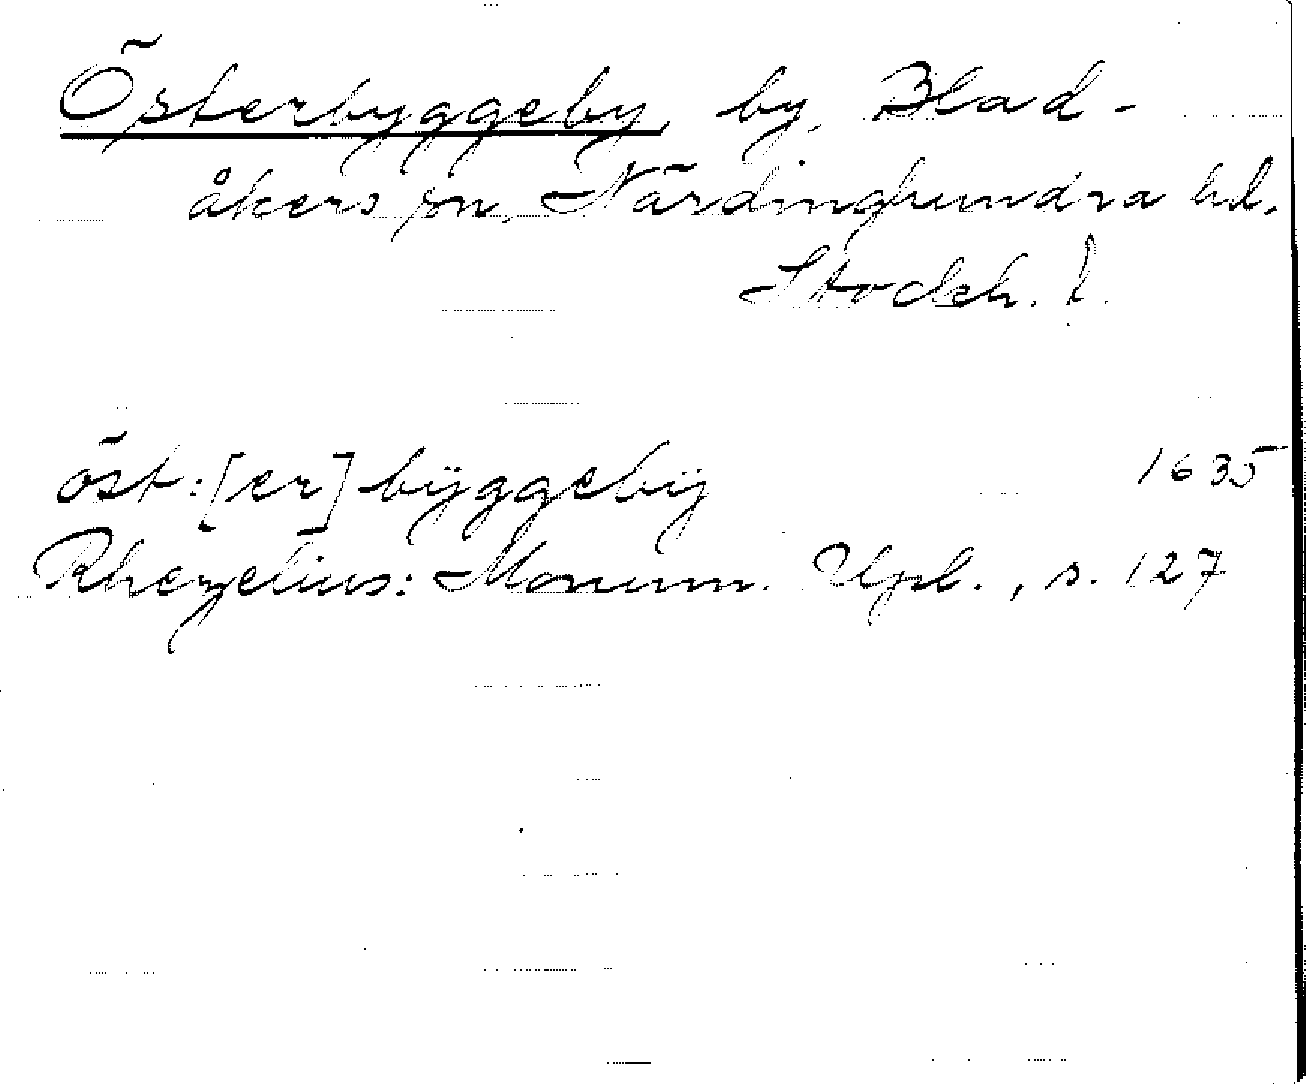 Österbyggeby, by, Blad-
åkers sn, Närdinghundra hd.
Stockh. l.
öst:[er] byggebÿ 1635
Rhezelius: Monum. Upl., s. 127